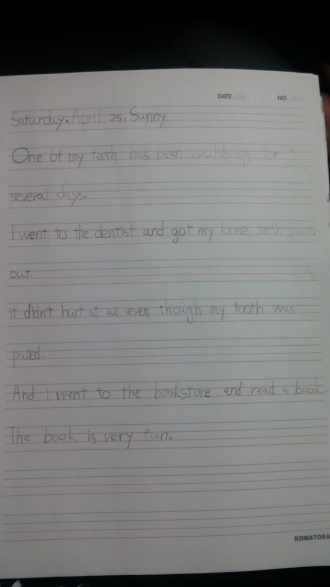 DATE. NO.
Saturday. April 25. Sunny
One of my teeth has been wobbling for
several days.
I went to the dentist and got my loose teeth
out
it didn't hurt at all even though my tooth was
pulled.
And I went to the bookstore and read a book
The book is very fun.
KOMATORA